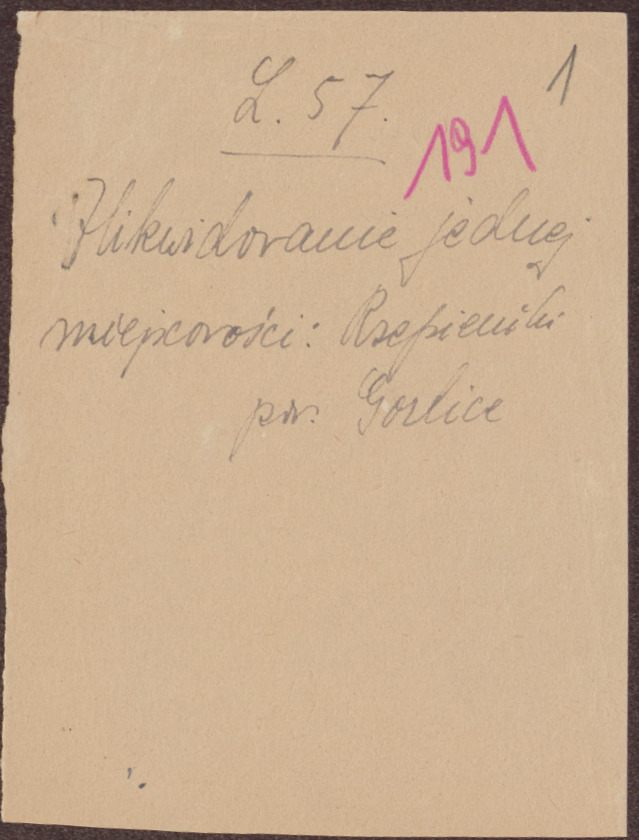 1
L. 57.
191
Zlikwidowanie jednej
miejscowości: Rzepieniki
pow. Gorlice